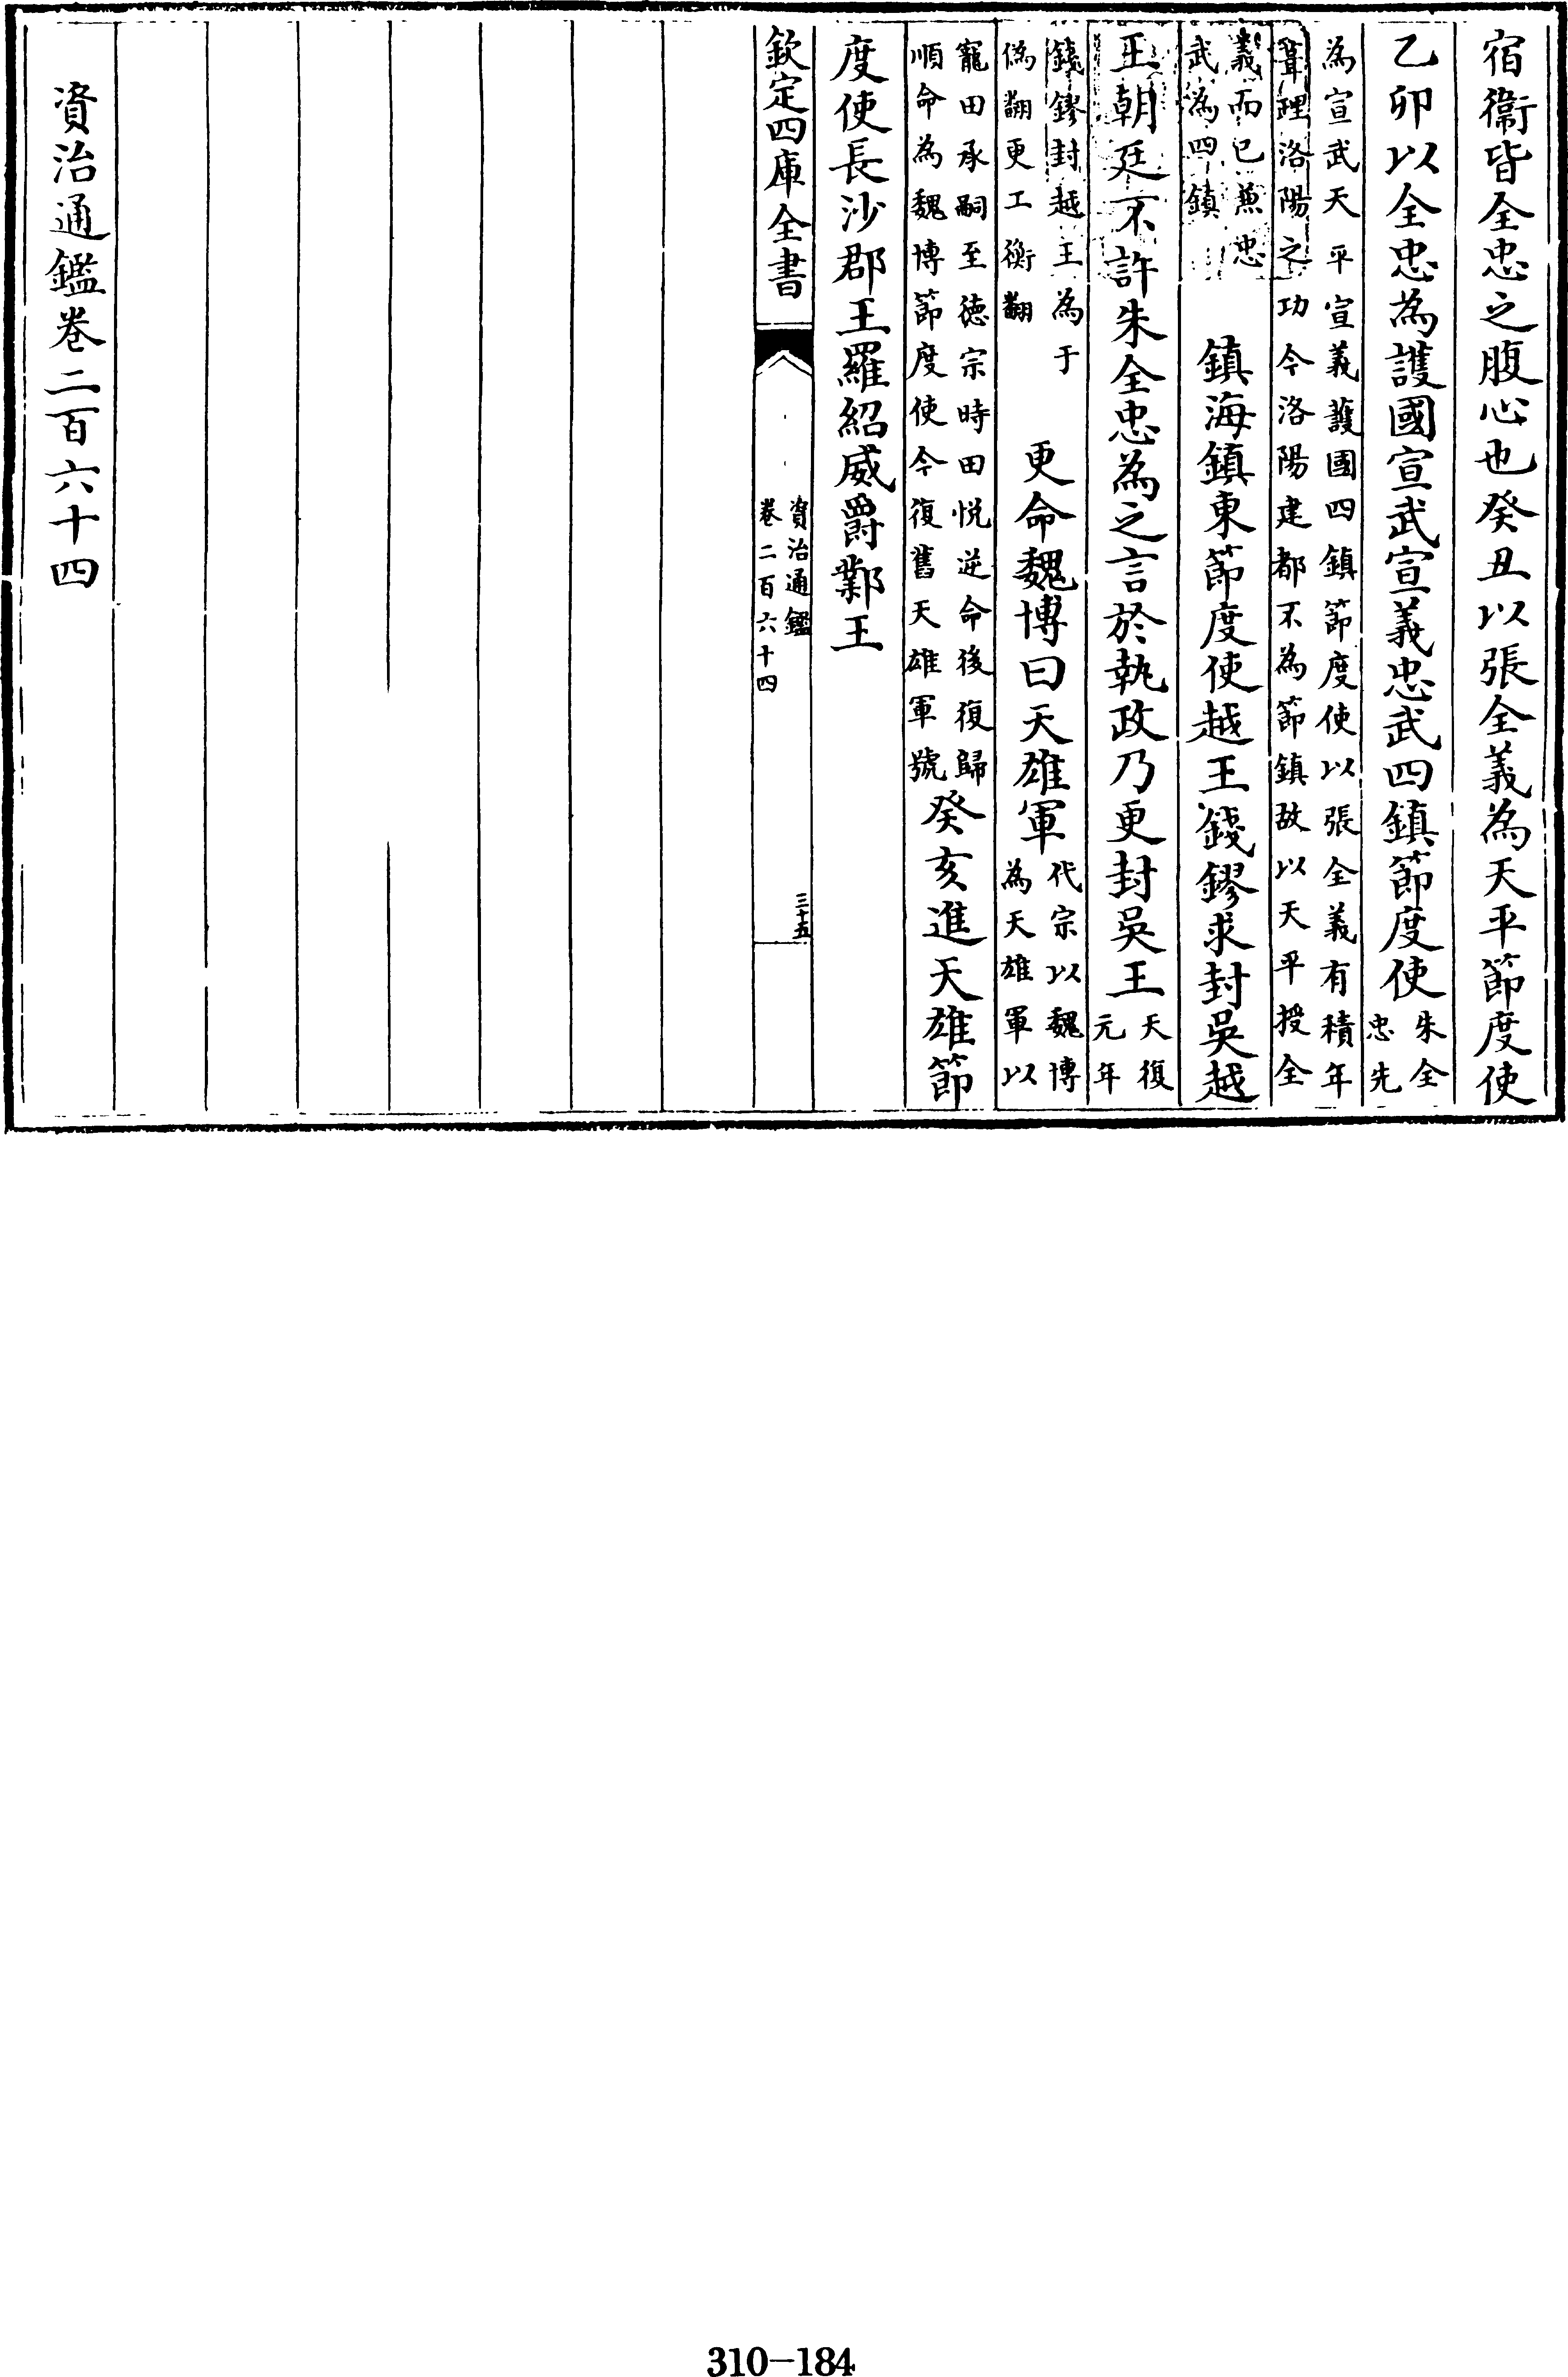 宿衛皆全忠之腹心也癸丑以張全義為天平節度使
乙卯以全忠為護國宣武宣義忠武四鎮節度使朱全忠先
為宣武天平宣義護國四鎮節度使以張全義有積年
葺理洛陽之功今洛陽建都不為節鎮故以天平授全
義而已兼忠武為四鎮鎮海鎮東節度使越王錢鏐求封吳越
王朝廷不許朱全忠為之言於執政乃更封吳王天復元年
錢鏐封越王為于偽翻更工衡翻更命魏博曰天雄軍代宗以魏博為天雄軍以
寵田承嗣至德宗時田悅逆命後復歸順命為魏博節度使今復舊天雄軍號癸亥進天雄節
度使長沙郡王羅紹威爵鄴王
欽定四庫全書
資治通鑑
卷二百六十四
三十五
資治通鑑卷二百六十四
310-184